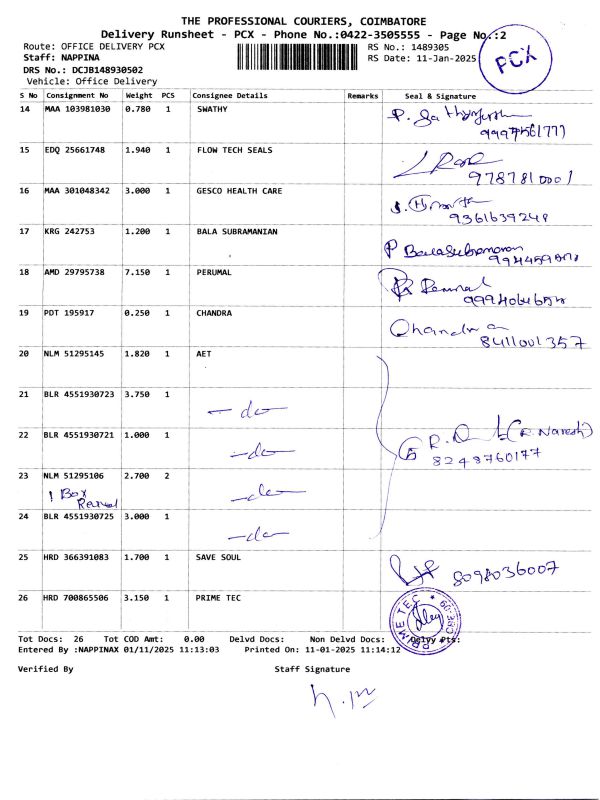 THE PROFESSIONAL COURIERS, COIMBATORE
Delivery Runsheet - PCX - Phone No.:0422-3505555 - Page No.:2
Route: OFFICE DELIVERY PCX RS No.: 1489305
Staff: NAPPINA RS Date: 11-Jan-2025
DRS No.: DCJB148930502
Vehicle: Office Delivery
PCX
S No Consignment No Weight PCS Consignee Details Remarks Seal & Signature
14 MAA 103981030 0.780 1 SWATHY
15 EDQ 25661748 1.940 1 FLOW TECH SEALS
9787810001
16 MAA 301048342 3.000 1 GESCO HEALTH CARE
9361639248
17 KRG 242753 1.200 1 BALA SUBRAMANIAN
P Balasubramanian
18 AMD 29795738 7.150 1 PERUMAL
19 PDT 195917 0.250 1 CHANDRA
Chandra
8411001357
20 NLM 51295145 1.820 1 AET
21 BLR 4551930723 3.750 1
-do-
22 BLR 4551930721 1.000 1
-do-
(R. Naresh)
8248760177
23 NLM 51295106 2.700 2
1 Box
-do-
24 BLR 4551930725 3.000 1
-do-
25 HRD 366391083 1.700 1 SAVE SOUL
8098036007
26 HRD 700865506 3.150 1 PRIME TEC
PRIME TEC
Tot Docs: 26 Tot COD Amt: 0.00 Delvd Docs: Non Delvd Docs: Dglvy Pts:
Entered By :NAPPINAX 01/11/2025 11:13:03 Printed On: 11-01-2025 11:14:12
Verified By Staff Signature